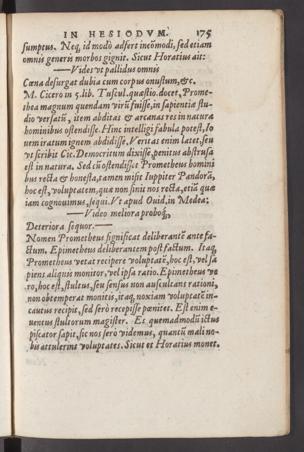 IN HESIODVM. 175
sumptus. Neq, id modò adfert incōmodi, sed etiam
omnis generis morbos gignit. Sicut Horatius ait:
——Vides vt pallidus omnis
Cœna desurgat dubia cum corpus onustum, &c.
M. Cicero in 5. lib. Tuscul. quæstio. docet, Prome-
thea magnum quendam virū fuisse, in sapientia stu-
dio versatū, item abditas & arcanas res in natura
hominibus ostendisse. Hinc intelligi fabula potest, Io
uem iratum ignem abdidisse, Veritas enim latet, seu
vt scribit Cic. Democritum dixisse, penitus abstrusa
est in natura. Sed cū ostendisset Prometheus homini
bus recta & honesta, tamen misit Iuppiter Pandorā,
hoc est, voluptatem, quæ non sinit nos recta, etiā quæ
iam cognouimus, sequi. Vt apud Ouid. in Medea:
——Video meliora proboq́;,
Deteriora sequor.——
Nomen Prometheus significat deliberantē ante fa-
ctum. Epimetheus deliberantem post factum. Itaq,
Prometheus vetat recipere voluptatē, hoc est, vel sa
piens aliquis monitor, vel ipsa ratio. Epimetheus ve
rò, hoc est, stultus, seu sensus non auscultans rationi,
non obtemperat monitis, itaq, noxiam voluptatē in-
cautus recipit, sed serò recepisse pœnitet. Est enim e-
uentus stultorum magister. Et quemadmodū ictus
piscator sapit, sic nos serò videmus, quantū mali no-
bis attulerint voluptates. Sicut et Horatius monet.